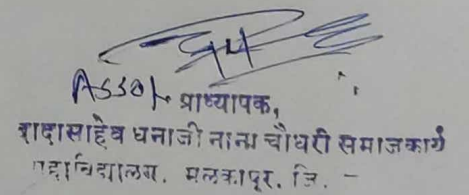 Assot. प्राध्यापक,
दादासाहेव धनाजी नाना चौधरी समाजकार्य
महाविद्यालय. मलकापूर. जि. -